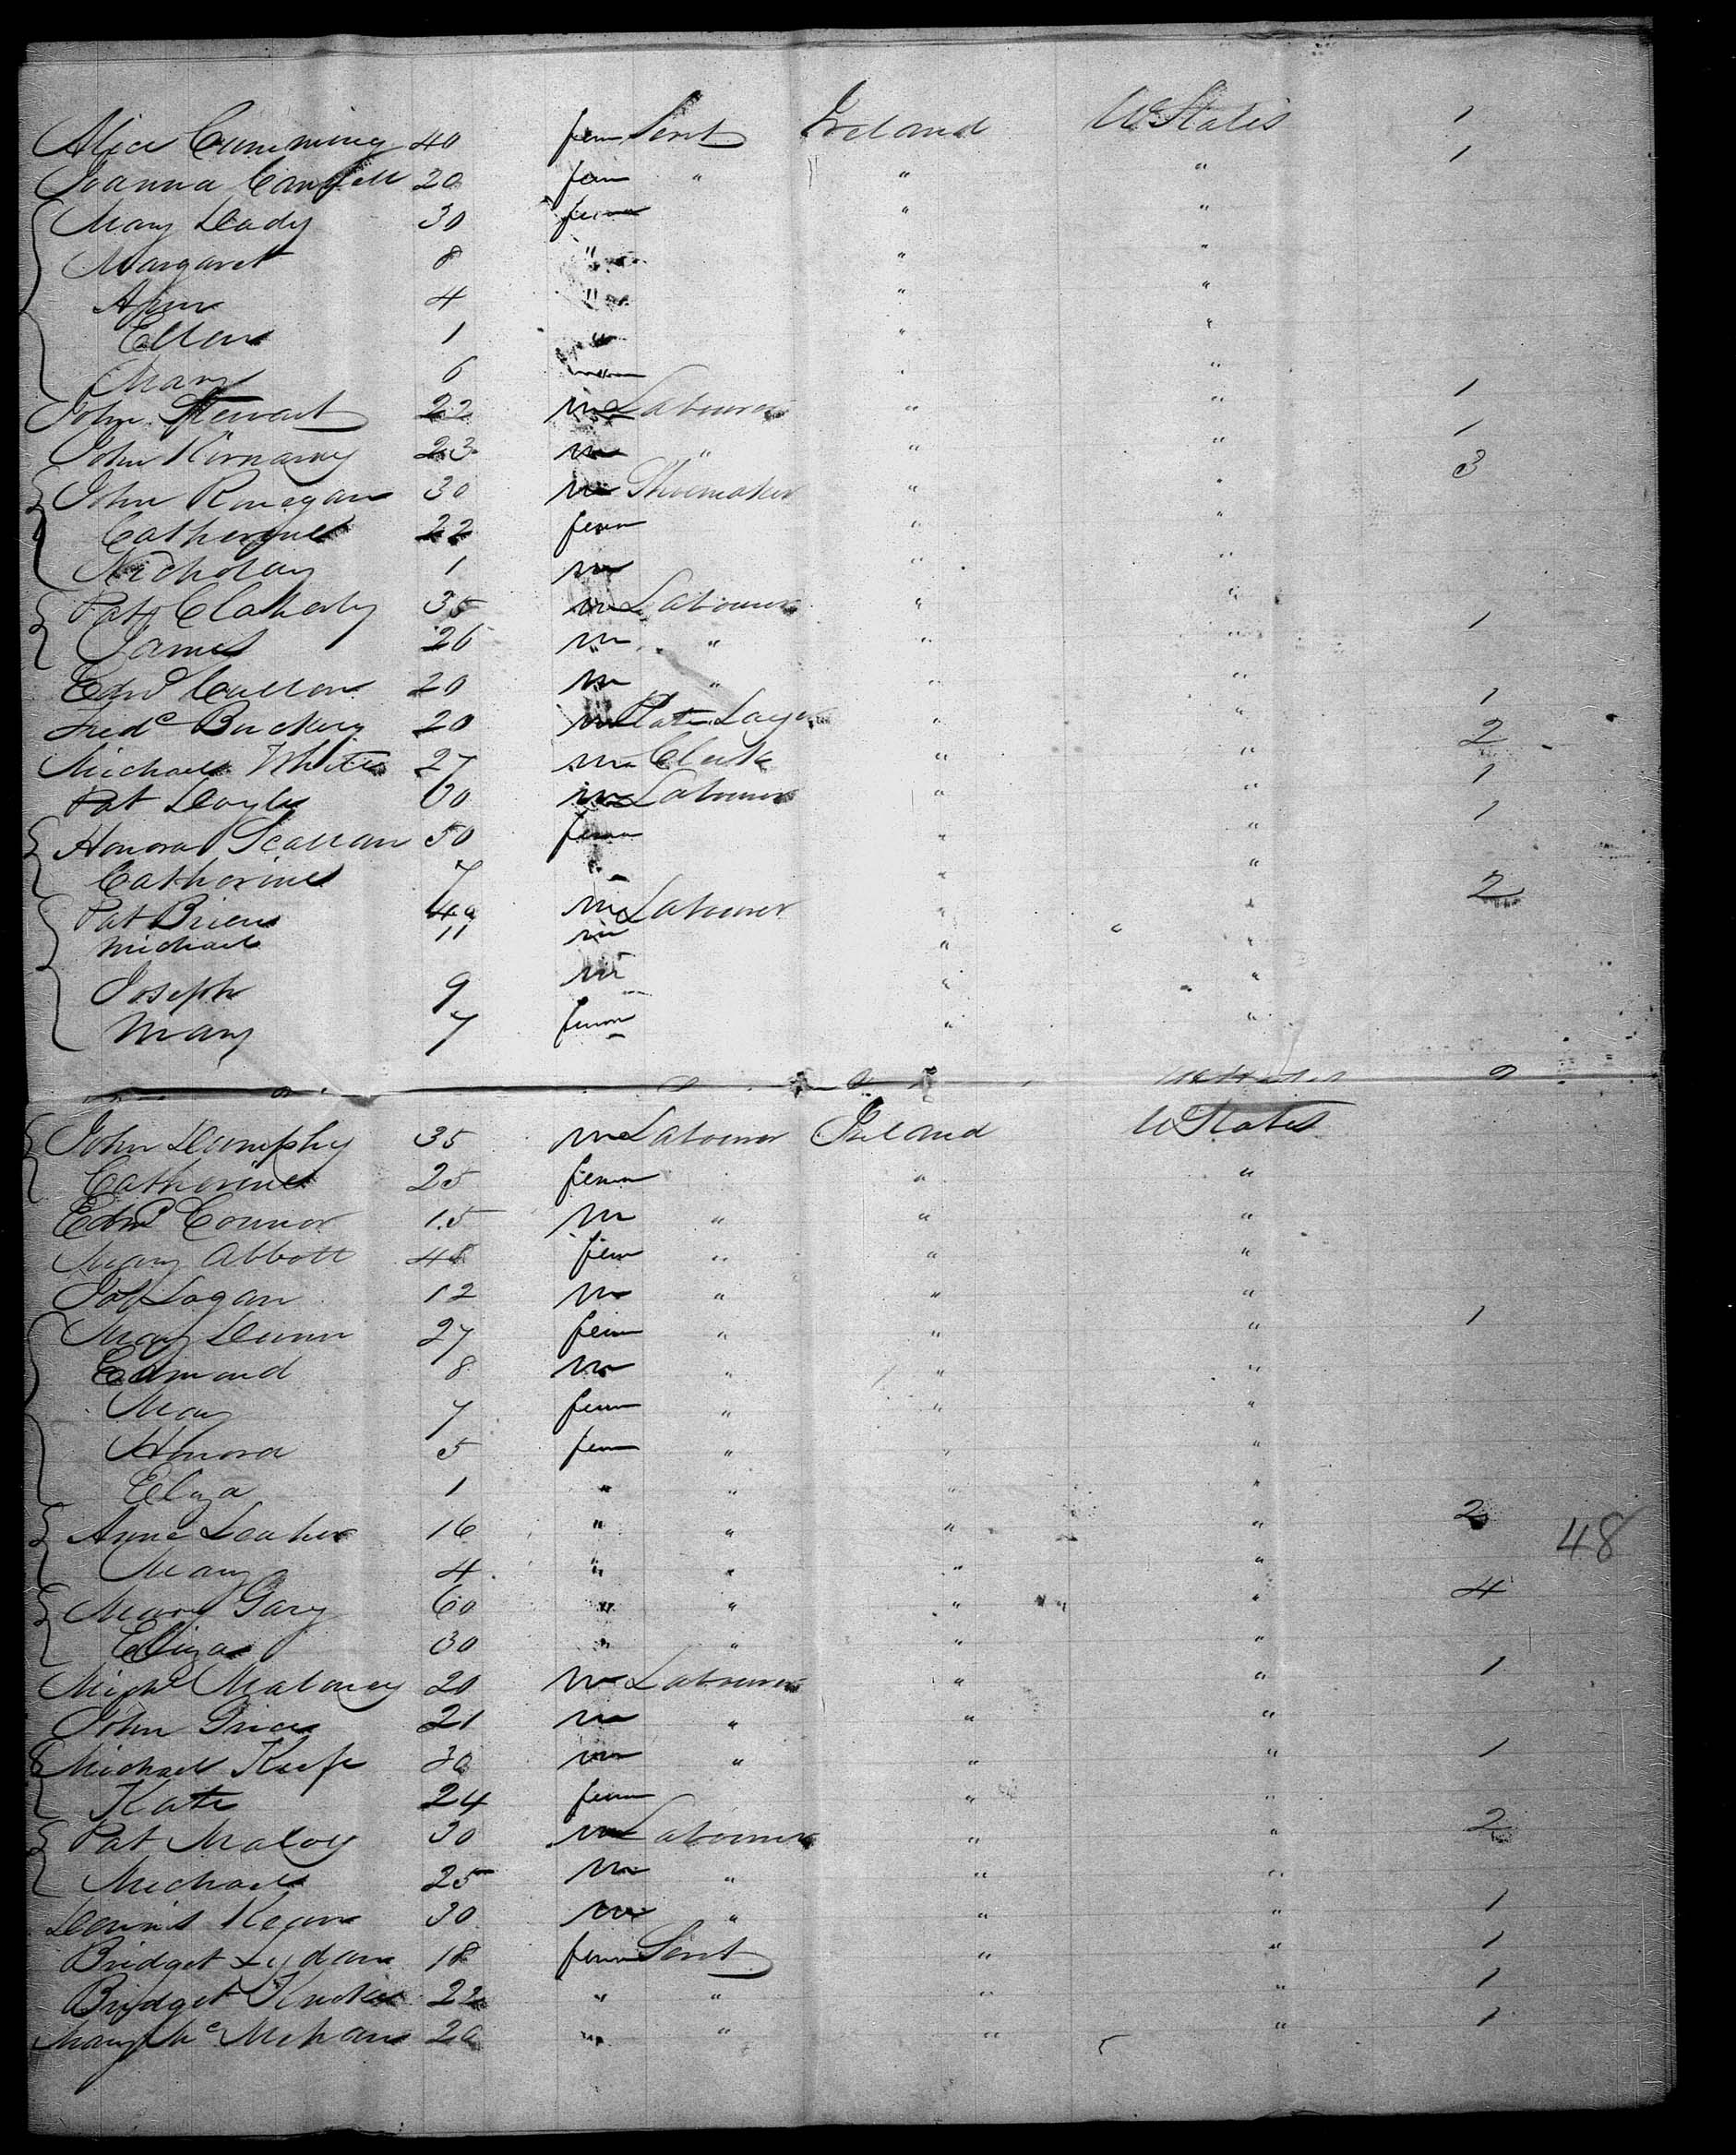 Alice Cumming 40 fem Servt Ireland U States 1
Joanna 20 fem " " " 1
Mary Dady 30 fem " "
Margaret 8 " " "
Ann 4 " " "
Ellen 1 " " "
Mary 6 " "
John Stewart 22 m Labourer " " 1
John 23 m " " " 1
John Ronegan 30 m Shoemaker " " 3
Catherine 22 fem " "
Nicholas 1 m " "
Pat Claherty 35 m Labourer " "
James 26 m " " " 1
Edwd Cullen 20 m " " "
Fredc Buckley 20 m Plate Layer " " 1
Michael White 27 m Clerk " " 2
Pat Doyle 30 m Labourer " " 1
Honora Scallan 50 fem " " 1
Catherine 7 " " "
Pat Brien 40 m Labourer " " 2
Michael 11 m " "
Joseph 9 m " "
Mary 7 fem " "
John Dumphy 35 m Labourer Ireland U States
Catherine 25 fem " "
Edwd Connor 15 m " " "
Mary Abbott 48 fem " " "
Logan 12 m " " "
Mary Dunn 27 fem " " " 1
Edmond 8 m " " "
Mary 7 fem " " "
Honora 5 fem " " "
Eliza 1 " " " "
Anne Leaher 16 " " " " 2
48
Mary 4 " " " "
Mary Gary 60 " " " " 4
Eliza 30 " " " "
Michl Maloney 20 m Labourer " " 1
John Grice 21 m " " "
Michael Keefe 30 m " " " 1
Kate 24 fem " "
Pat Maloy 30 m Labourer " " 2
Michael 25 m " " "
Dennis Kegan 30 m " " " 1
Bridget Lydan 18 fem Servt " " 1
Bridget 22 " " " " 1
Mary Mc Mehan 20 " " " " 1